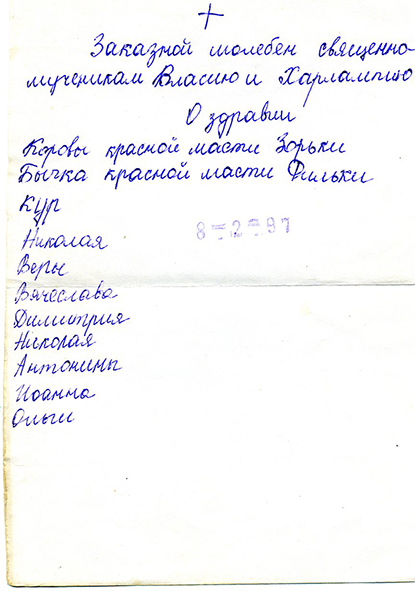 +
Заказной молебен священно-
мученикам Власию и Харлампию
О здравии
Коровы красной масти Зорьки
Бычка красной масти Фильки
Кур
8 – 2 – 97
Николая
Веры
Вячеслава
Димитрия
Николая
Антонины
Иоанна
Ольги